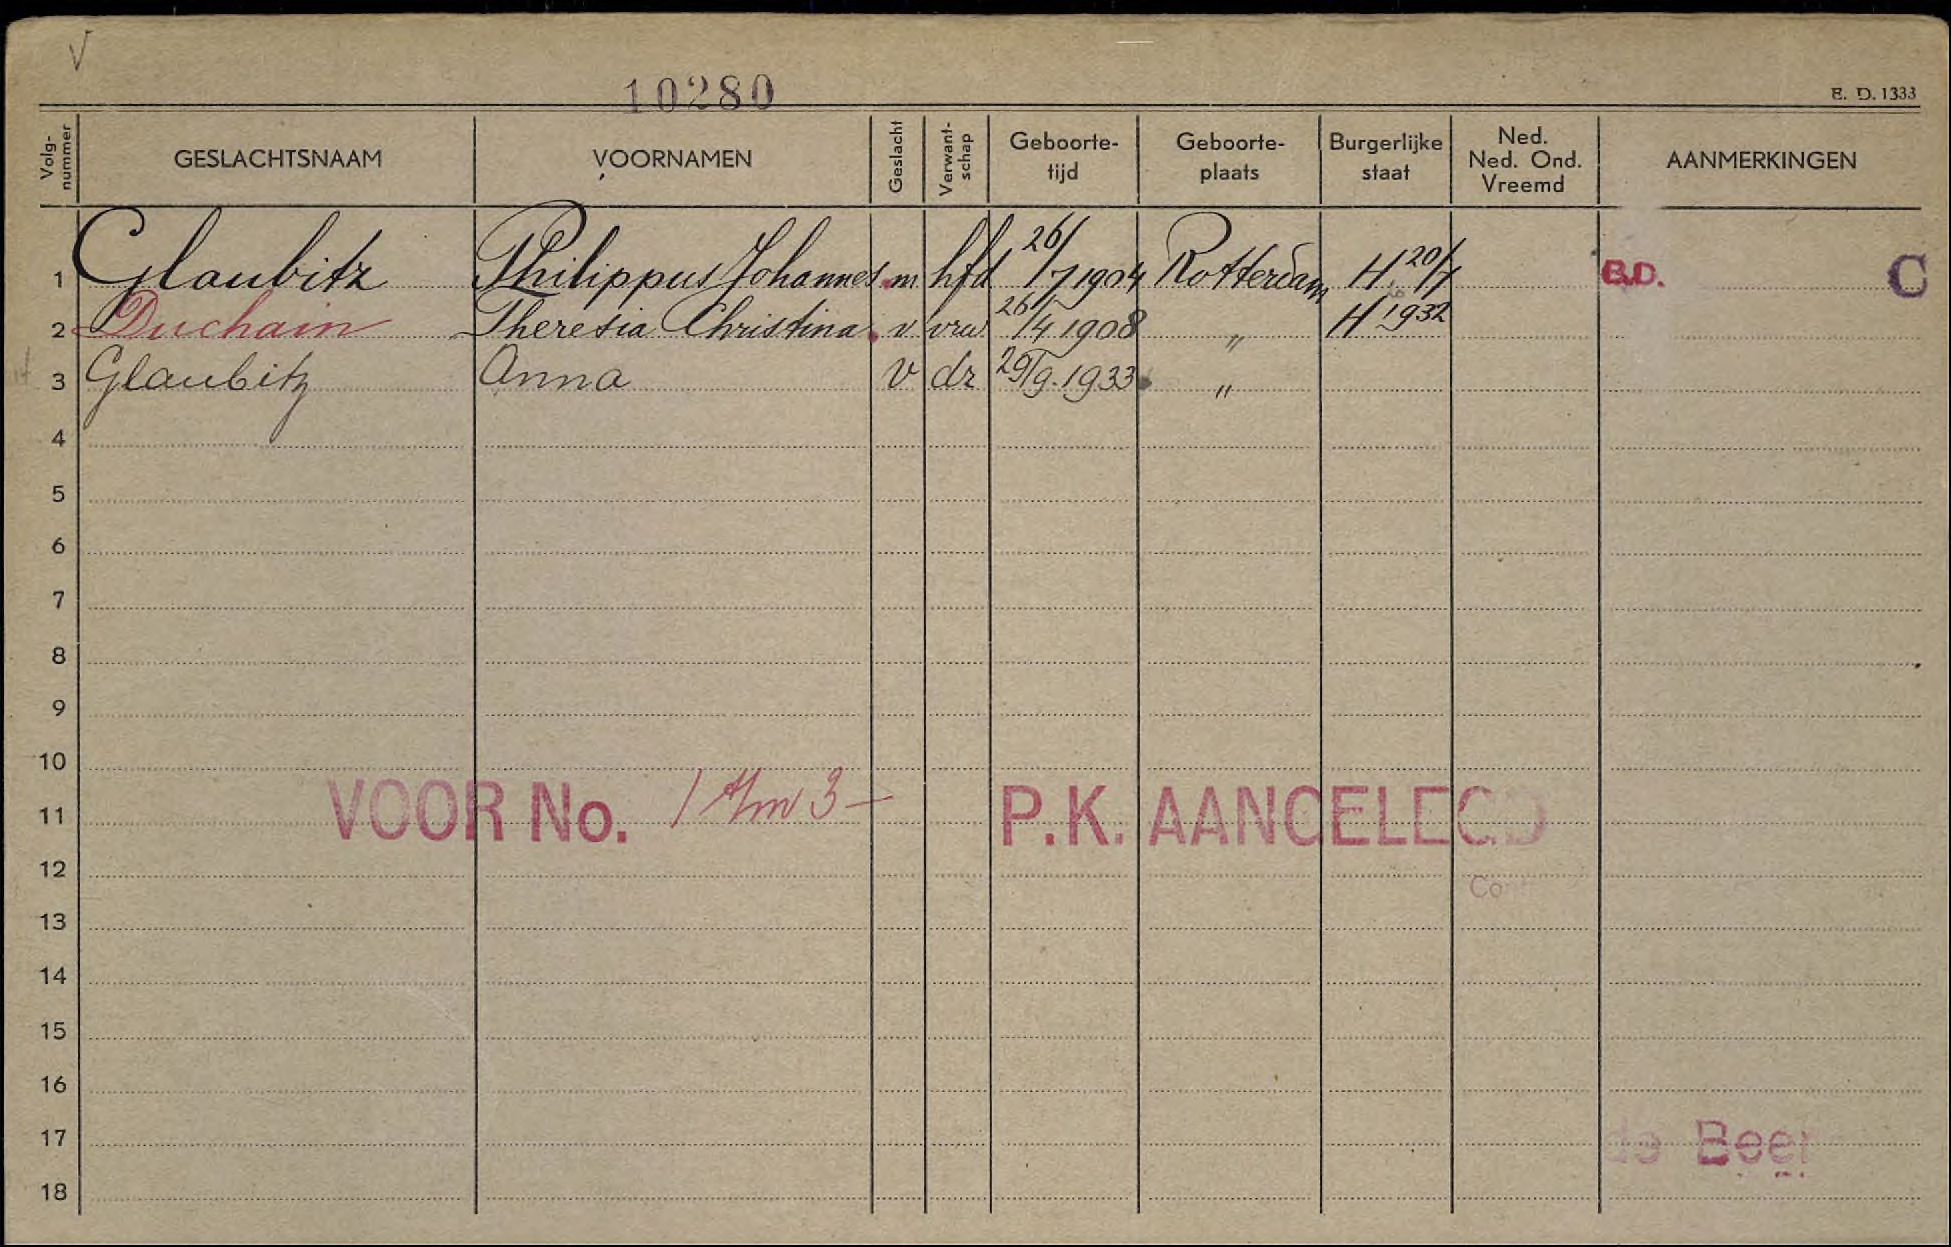 √
10280
E. D. 1333
Volg-nummer GESLACHTSNAAM VOORNAMEN Geslacht Verwant-schap Geboorte-tijd Geboorte-plaats Burgerlijke staat Ned. Ned. Ond. Vreemd AANMERKINGEN
1 Glaubitz Philippus Johannes m hfd 26/7 1904 Rotterdam H 20/7 B.D. C
2 Duchain Theresia Christina v vrw 26/4 1908 " H 1932
3 Glaubitz Anna v dr 29/9.1933 "
4
5
6
7
8
9
10
11 VOOR No. 1 t/m 3 — P.K. AANGELEGD
12
13
14
15
16
17 de Beer
18